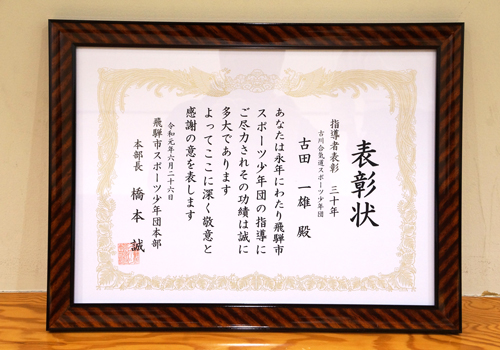 表彰状
指導者表彰　三十年
古川合氣道スポーツ少年団
古田　一雄　殿
あなたは永年にわたり飛騨市
スポーツ少年団の指導に
ご尽力されその功績は誠に
多大であります
よってここに深く敬意と
感謝の意を表します
令和元年六月二十六日
飛騨市スポーツ少年団本部
本部長　橋本　誠